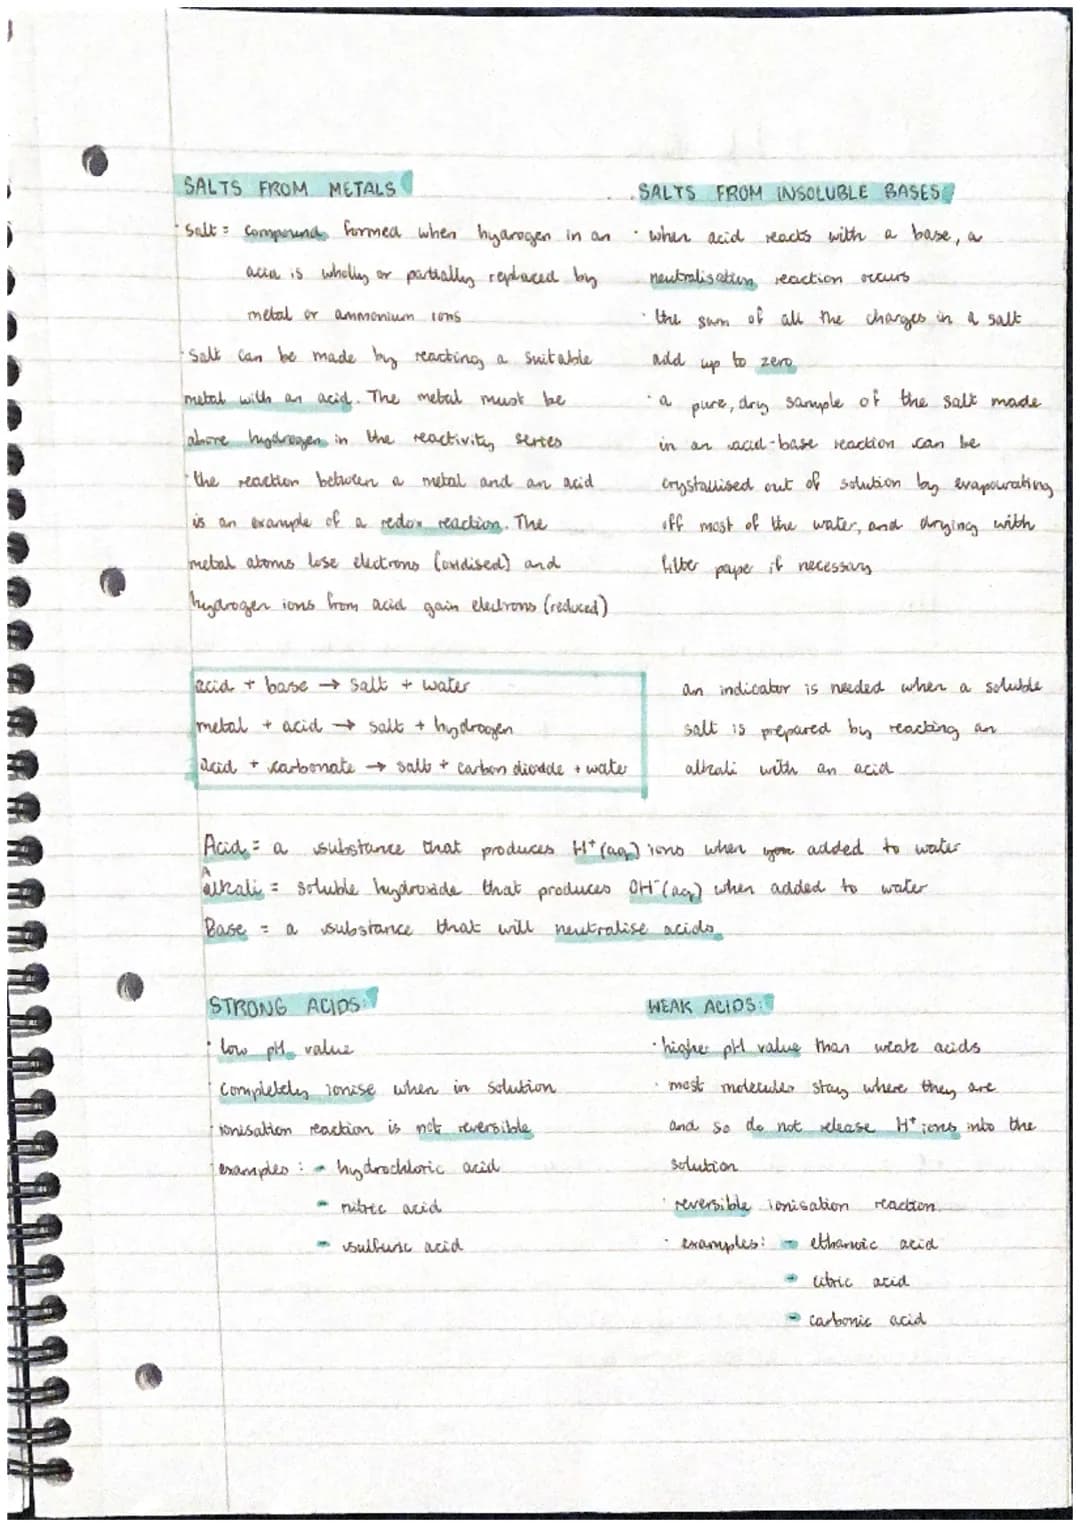 SALTS FROM METALS
· Salt = compound formed when hydrogen in an
acid is wholly or partially replaced by
metal or ammonium ions
· Salt can be made by reacting a suitable
metal with an acid. The metal must be
above hydrogen in the reactivity series
· the reaction between a metal and an acid
is an example of a redox reaction. The
metal atoms lose electrons (oxidised) and
hydrogen ions from acid gain electrons (reduced)
SALTS FROM INSOLUBLE BASES
· when acid reacts with a base, a
neutralisation reaction occurs
· the sum of all the charges in a salt
add up to zero
· a pure, dry sample of the salt made
in an acid-base reaction can be
crystallised out of solution by evapourating
off most of the water, and drying with
filter paper if necessary
acid + base → salt + water
metal + acid → salt + hydrogen
acid + carbonate → salt + carbon dioxide + water
an indicator is needed when a soluble
salt is prepared by reacting an
alkali with an acid
Acid = a substance that produces H⁺(aq) ions when added to water
Alkali = soluble hydroxide that produces OH⁻(aq) when added to water
Base = a substance that will neutralise acids
STRONG ACIDS:
· low pH value
· completely ionise when in solution
· ionisation reaction is not reversible
· examples : - hydrochloric acid
- nitric acid
- sulfuric acid
WEAK ACIDS:
· higher pH value than weak acids
· most molecules stay where they are
and so do not release H⁺ ions into the
solution
· reversible ionisation reaction
· examples: - ethanoic acid
- citric acid
- carbonic acid